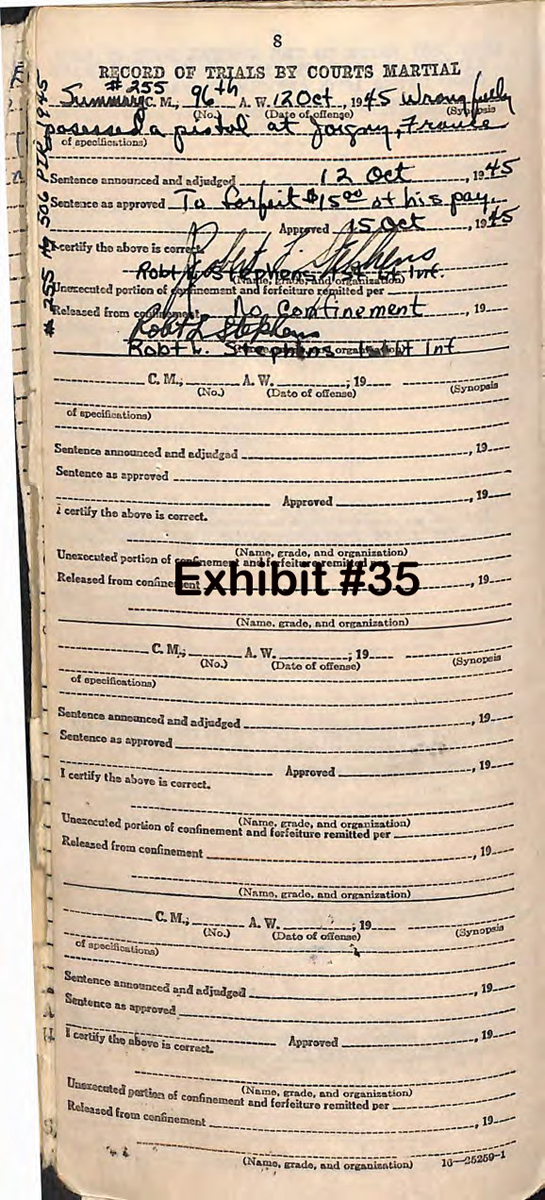 8
RECORD OF TRIALS BY COURTS MARTIAL
# 255
Summary C. M., 96th A. W. 12 Oct, 1945 Wrongfully
(No.) (Date of offense) (Synopsis
posessed a pistol at Joigny, France
of specifications)
Sentence announced and adjudged 12 Oct, 1945
Sentence as approved To forfeit $15.00 of his pay.
Approved 15 Oct, 1945
I certify the above is correct.
Robt L Stephens
Robt L. Stephens 1st Lt Inf.
(Name, grade, and organization)
Unexecuted portion of confinement and forfeiture remitted per
Released from confinement No Confinement, 19
Robt L Stephens
Robt L. Stephens 1st Lt Inf
# 255 506 PIR 1945
C. M., A. W. ; 19
(No.) (Date of offense) (Synopsis
of specifications)
Sentence announced and adjudged , 19
Sentence as approved
Approved , 19
I certify the above is correct.
(Name, grade, and organization)
Unexecuted portion of confinement and forfeiture remitted per
Exhibit #35
Released from confinement , 19
(Name, grade, and organization)
C. M., A. W. ; 19
(No.) (Date of offense) (Synopsis
of specifications)
Sentence announced and adjudged , 19
Sentence as approved
Approved , 19
I certify the above is correct.
(Name, grade, and organization)
Unexecuted portion of confinement and forfeiture remitted per
Released from confinement , 19
(Name, grade, and organization)
C. M., A. W. ; 19
(No.) (Date of offense) (Synopsis
of specifications)
Sentence announced and adjudged , 19
Sentence as approved
Approved , 19
I certify the above is correct.
(Name, grade, and organization)
Unexecuted portion of confinement and forfeiture remitted per
Released from confinement , 19
(Name, grade, and organization) 16—25259-1